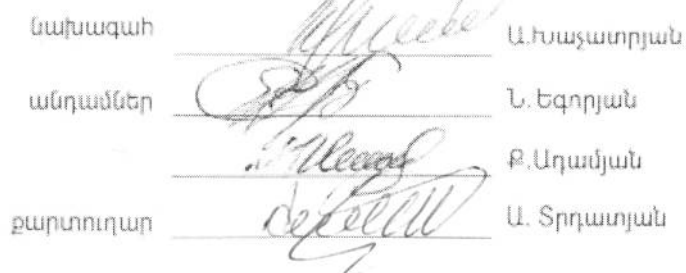 նախագահ Ա.Խաչատրյան
անդամներ Ն. Եգորյան
Ք.Ադամյան
քարտուղար Ա. Տրդատյան